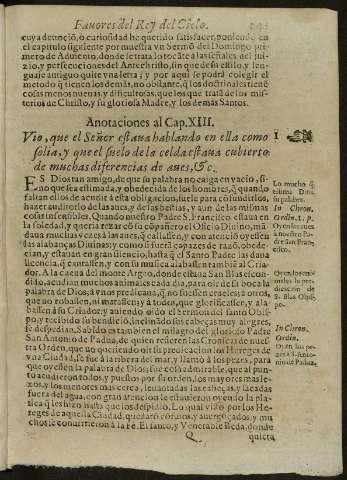 Fauores del Rey del Cielo.
cuya deuoció, o curiosidad he querido satisfacer, poniendo en
el capitulo siguiente por muestra vn Sermō del Domingo pri
mero de Aduiento, donde se trata lo tocāte a las señales del jui-
zio, y persecuciones del Antechristo, sin que de su estilo, y len-
guaje antiguo quite vna letra; y por aqui se podrá colegir el
metodo q̄ tienen los demás, no obstante, q̄ los doctrinales tienē
cosas menos tratadas, y dificultosas, que les que trata de los mis-
terios de Christo, y su gloriosa Madre, y los demás Santos.
Anotaciones al Cap. XIII.
Vio, que el Señor estaua hablando en ella como
solia, y que el suelo de la celda estaua cubierto
de muchas diferencias de aues, &c.
1
ES Dios tan amigo, de que su palabra no caiga en vacio, si-
no que sea estimada, y obedecida de los hombres, q̄ quando
faltan ellos de acudir à esta obligacion, suele para cōfundirlos,
hazer auditorio de las aues, y de las bestias, y aun de las mismas
cosas insensibles. Quando nuestro Padre S. Francisco estaua en
la soledad, y queria rezar cō su cōpañero el Oficio Diuino, mā
daua muchas vezes à las aues, q̄ callassen, y con atenciō oyessen
las alabanças Diuinas; y como si fuerā capazes de razō, obede-
cian, y estauan en gran silencio, hasta q̄ el Santo Padre las daua
licencia, q̄ cantassen, y con su musica alabassen tambiē al Cria-
dor. A la cueua del monte Argeo, donde estaua San Blas escon-
dido, acudian muchos animales cada dia, para oir de su boca la
palabra de Dios; à vnos predicaua, q̄ no fuessen crueles; à otros
que no robassen, ni matassen; y à todos, que glorificassen, y ala-
bassen à su Criador; y auiendo oido el Sermon del santo Obis-
po, y recibido su bendició, inclinādo sus cabeças muy alegres,
se despedian. Sabido es tambien el milagro del glorioso Padre
San Antonio de Padua, de quien refieren las Cronicas de nues-
tra Orden, que no queriendo oir su predicacion los Hereges de
vna Ciudad, se fue à la ribera del mar, y llamò à los peces, para
que oyessen la palabra de Dios: fue cosa admirable, que al pun-
to acudieron todos, y puestos por su orden, los mayores mas le-
xos, y los menores mas cerca, leuantadas las cabeças, y sacadas
fuera del agua, con gran atencion le estuuieron oyendo la pla-
tica q̄ les hizo hasta que los despidio. Lo qual visto por los He-
reges de aquella Ciudad, quedarō cōfusos, y auergōçados, y mu
chos se conuirtieron à la Fè. El santo, y Venerable Beda, donde
Q
quiera
Lo mucho q̄
estima Dios
su palabra.
In Chron.
Ordin. 1. p.
Oyen las aues
à nuestro Pa-
dre San Fran-
cisco.
S. Blas Obis-
po.
In Chron.
Ordin.
Oyen los pe-
zes à S. Anto-
nio de Padua.